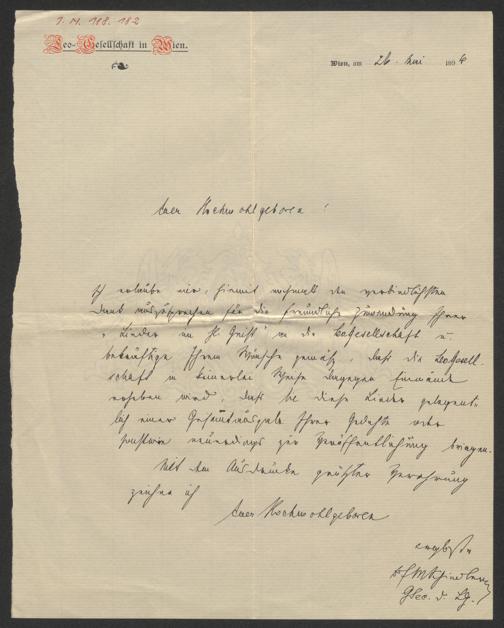 I. N. 188.182
Leo-Gesellschaft in Wien.
Wien, am 26. Mai 1896
Euer Hochwohlgeboren!
Ich erlaube mir, hiemit nochmals den verbindlichsten
Dank auszusprechen für die freundliche Zusendung Ihrer
"Lieder an den hl. Geist" an die Leogesellschaft u.
bestätige Ihrem Wunsche gemäß, daß die Leogesell-
schaft in keinerlei Weise dagegen Einwände
erheben wird, daß Sie diese Lieder gelegent-
lich einer Gesamtausgabe Ihrer Gedichte oder
sonstwie neuerdings zur Veröffentlichung bringen.
Mit dem Ausdrucke größter Verehrung
zeichne ich
Euer Hochwohlgeboren
ergebenster
Dr F M Schindler
GSec. d. LG.